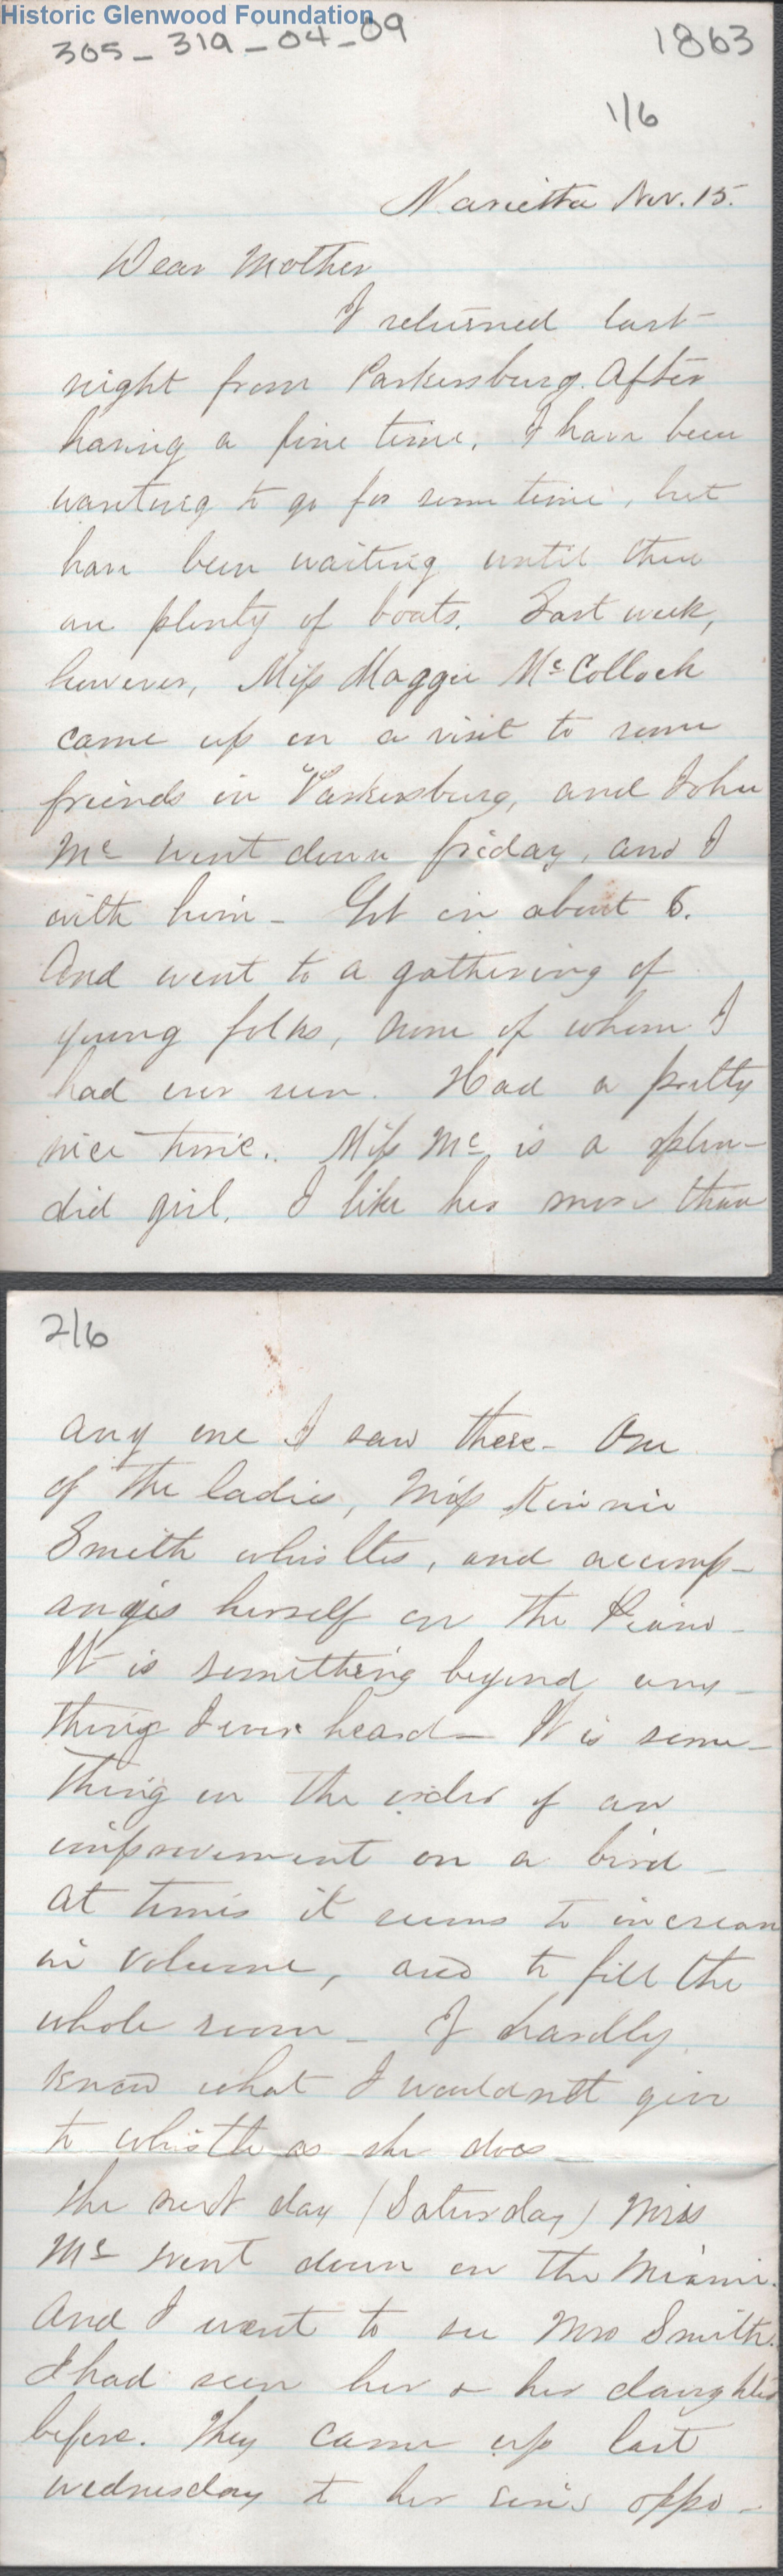 Historic Glenwood Foundation
305_319_04_09
1863
1/6
Marietta Nov. 15.
Dear Mother
I returned last
night from Parkersburg. After
having a fine time. I have been
wanting to go for some time, but
have been waiting until there
are plenty of boats. Last week,
however, Miss Maggie McCollock
came up on a visit to some
friends in Parkersburg, and John
Mc went down friday, and I
with him - Got in about 6.
And went to a gathering of
young folks, none of whom I
had ever seen. Had a pretty
nice time. Miss Mc is a splen-
did girl. I like her more than
2/6
any one I saw there - One
of the ladies, Miss
Smith whistles, and accomp-
anys herself on the Piano -
It is something beyond any-
thing I ever heard - It is some-
thing on the order of an
improvement on a bird -
At times it seems to increase
in volume, and to fill the
whole room - I hardly
know what I wouldn't give
to whistle as she does -
The next day (Saturday) Miss
Mc went down on the Miami.
And I went to see Mrs Smith.
I had seen her & her daughter
before. They came up last
wednesday to her son's oppo-